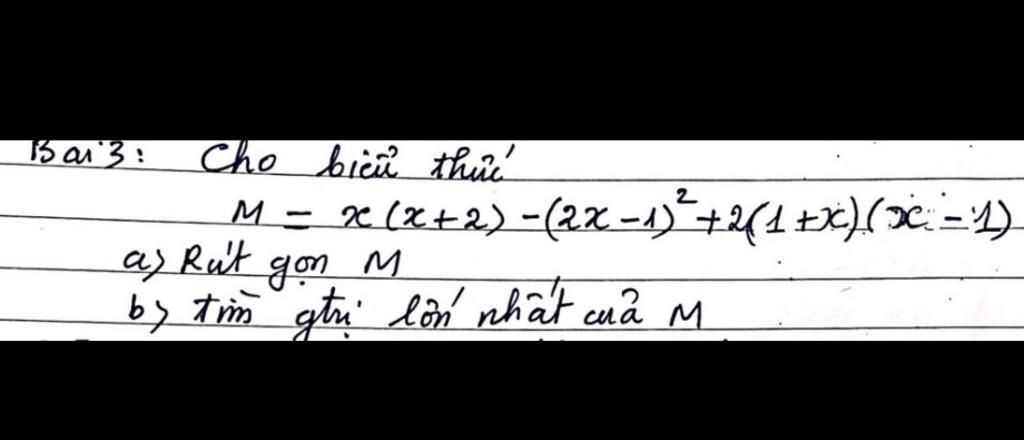 Bài 3: Cho biểu thức
M = x(x+2) -(2x-1)²+2(1+x)(x-1)
a) Rút gọn M
b) tìm gtrị lớn nhất của M